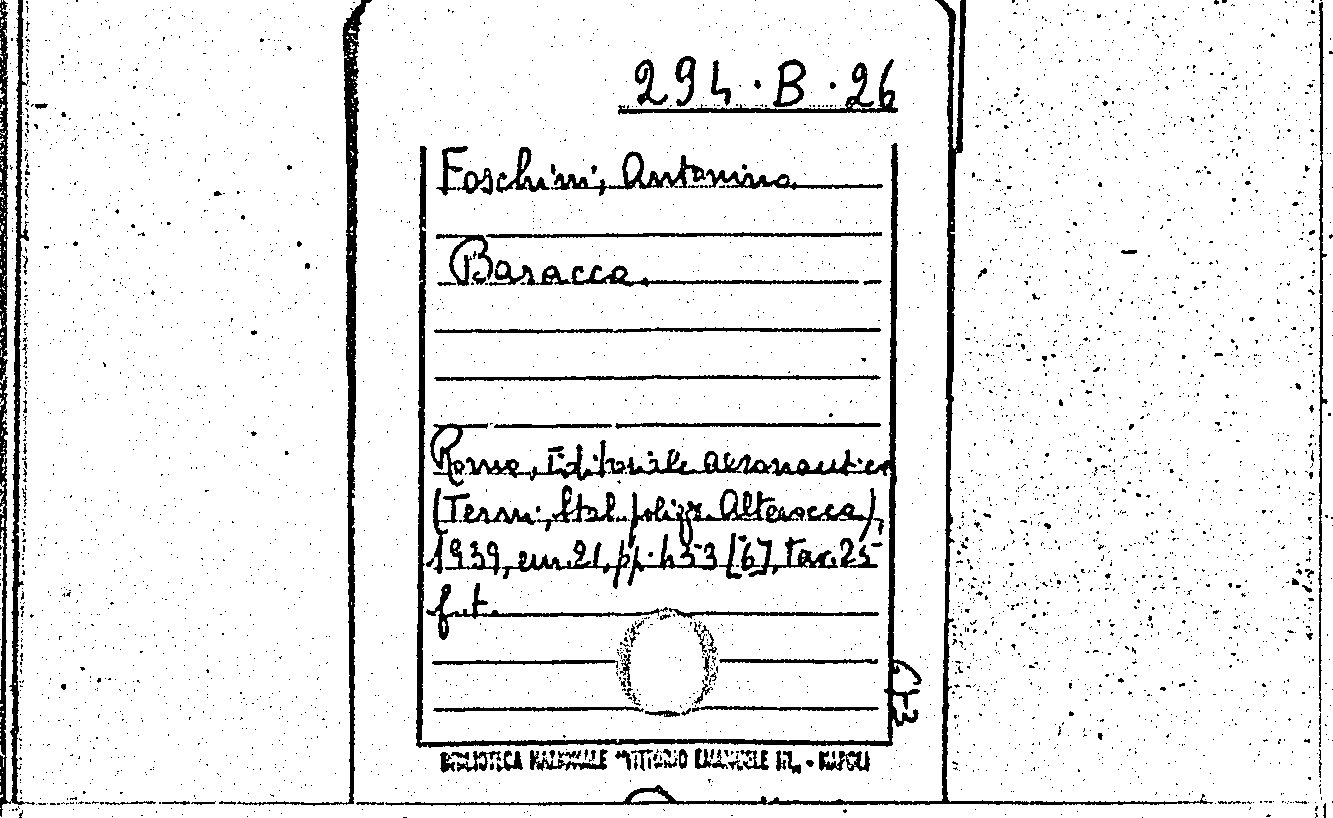 294 · B · 26
Foschini, Antonino.
Baracca.
Roma, Editoriale aeronautica
(Terni, Stab. poligr. Alterocca),
1939, cm. 21, pp. 453 [6], tav. 25
f. t.
BIBLIOTECA NAZIONALE "VITTORIO EMANUELE III„ - NAPOLI